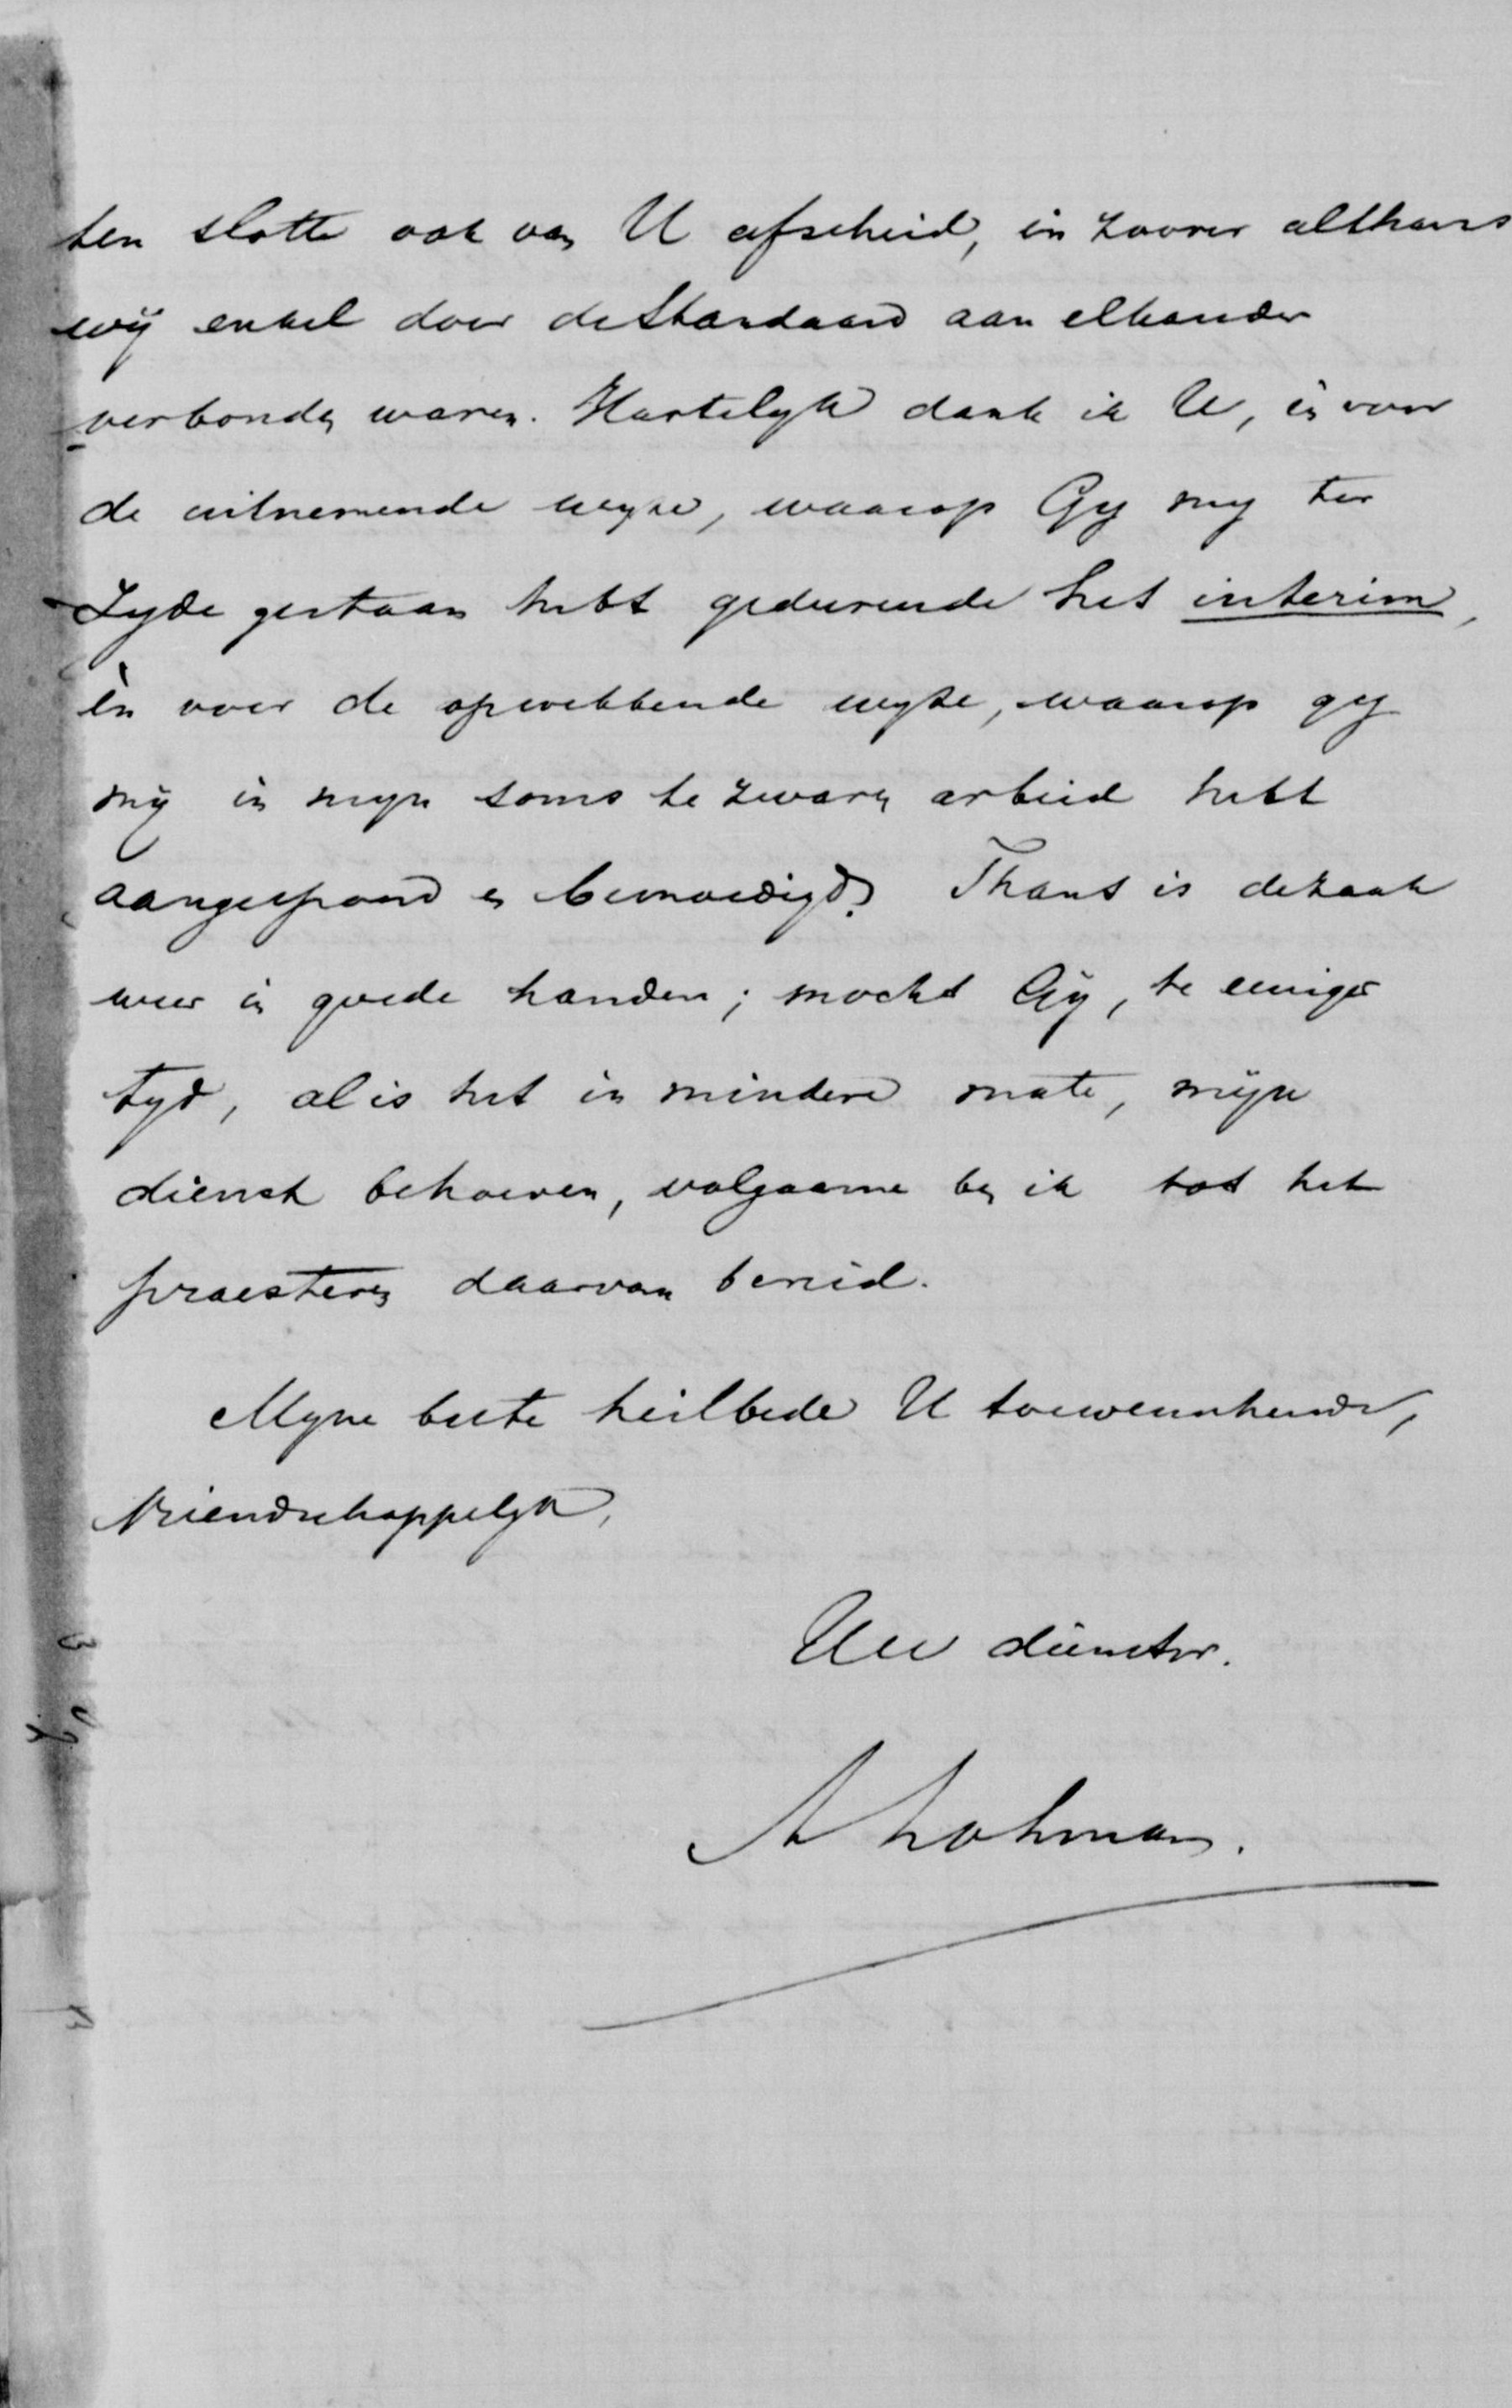 ten slotte ook van U afscheid, in zoover althans
wij enkel door de Standaard aan elkander
verbonden waren. Hartelyk dank ik U, èn voor
de uitnemende wyze, waarop Gy my ter
Zyde gestaan hebt gedurende het interim,
èn voor de opwekkende wyze, waarop gy
mij in myn soms te zwaren arbeid hebt
aangespoord en bemoedigd. Thans is de zaak
weer in goede handen; mocht Gij, te eeniger
tyd, al is het in mindere mate, mijn
dienst behoeven, volgaarne ben ik tot het
praesteren daarvan bereid.
Myne beste heilbede U toewenschende,
Vriendschappelyk,
Uw dienstw.
A Lohman.